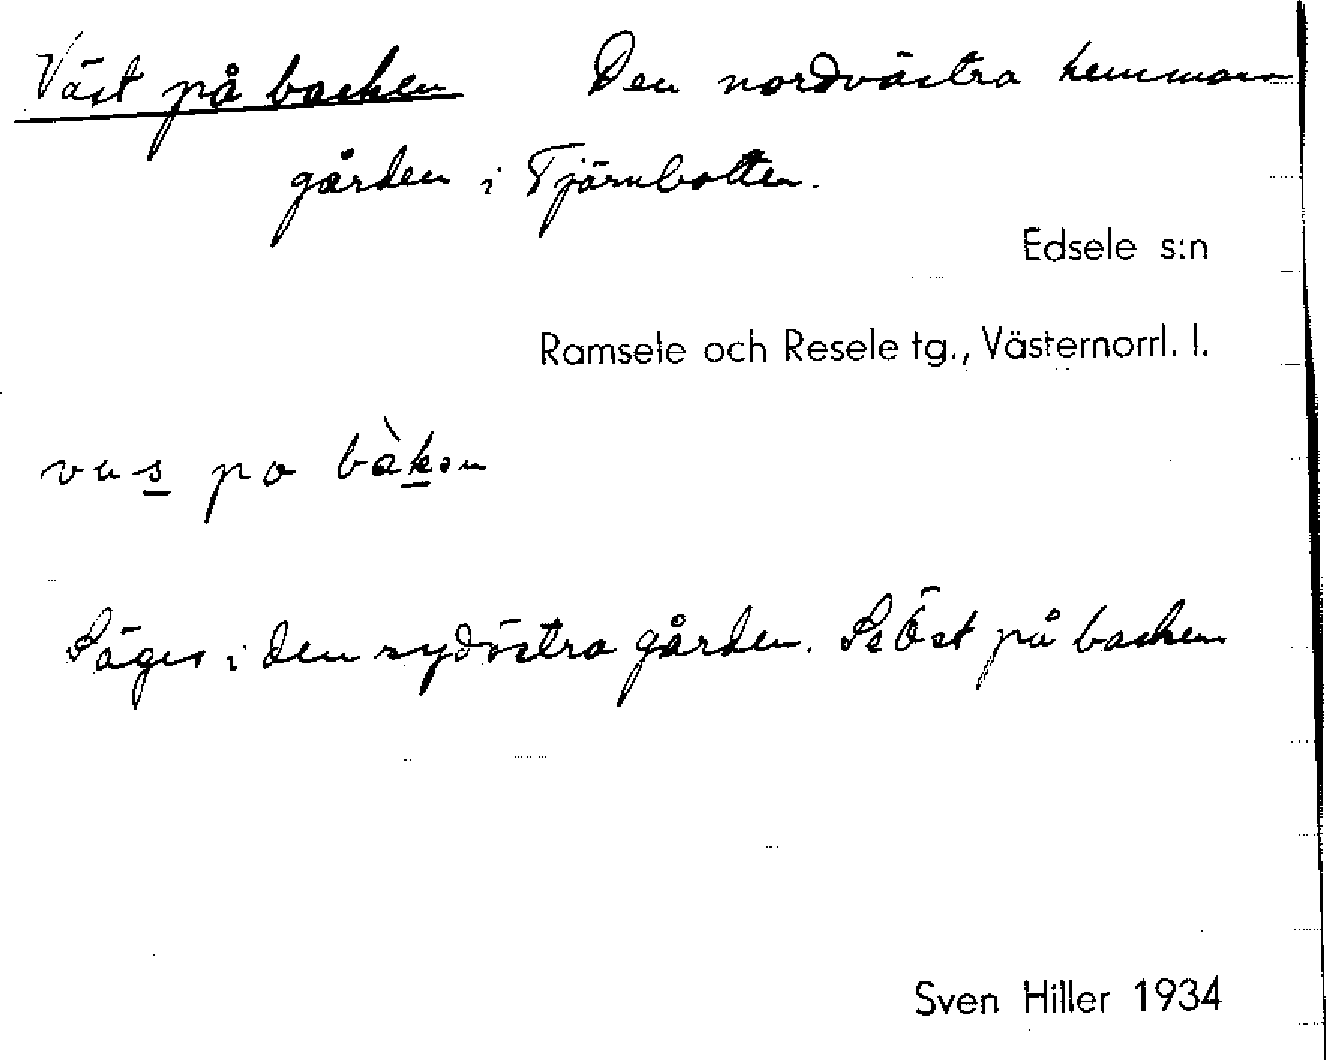 Väst på backen Den nordvästra hemmans
gården i Tjärnbotten.
Edsele s:n
Ramsele och Resele tg., Västernorrl. l.
vus po bàkən
Säges i den sydöstra gården. Se Öst på backen
Sven Hiller 1934